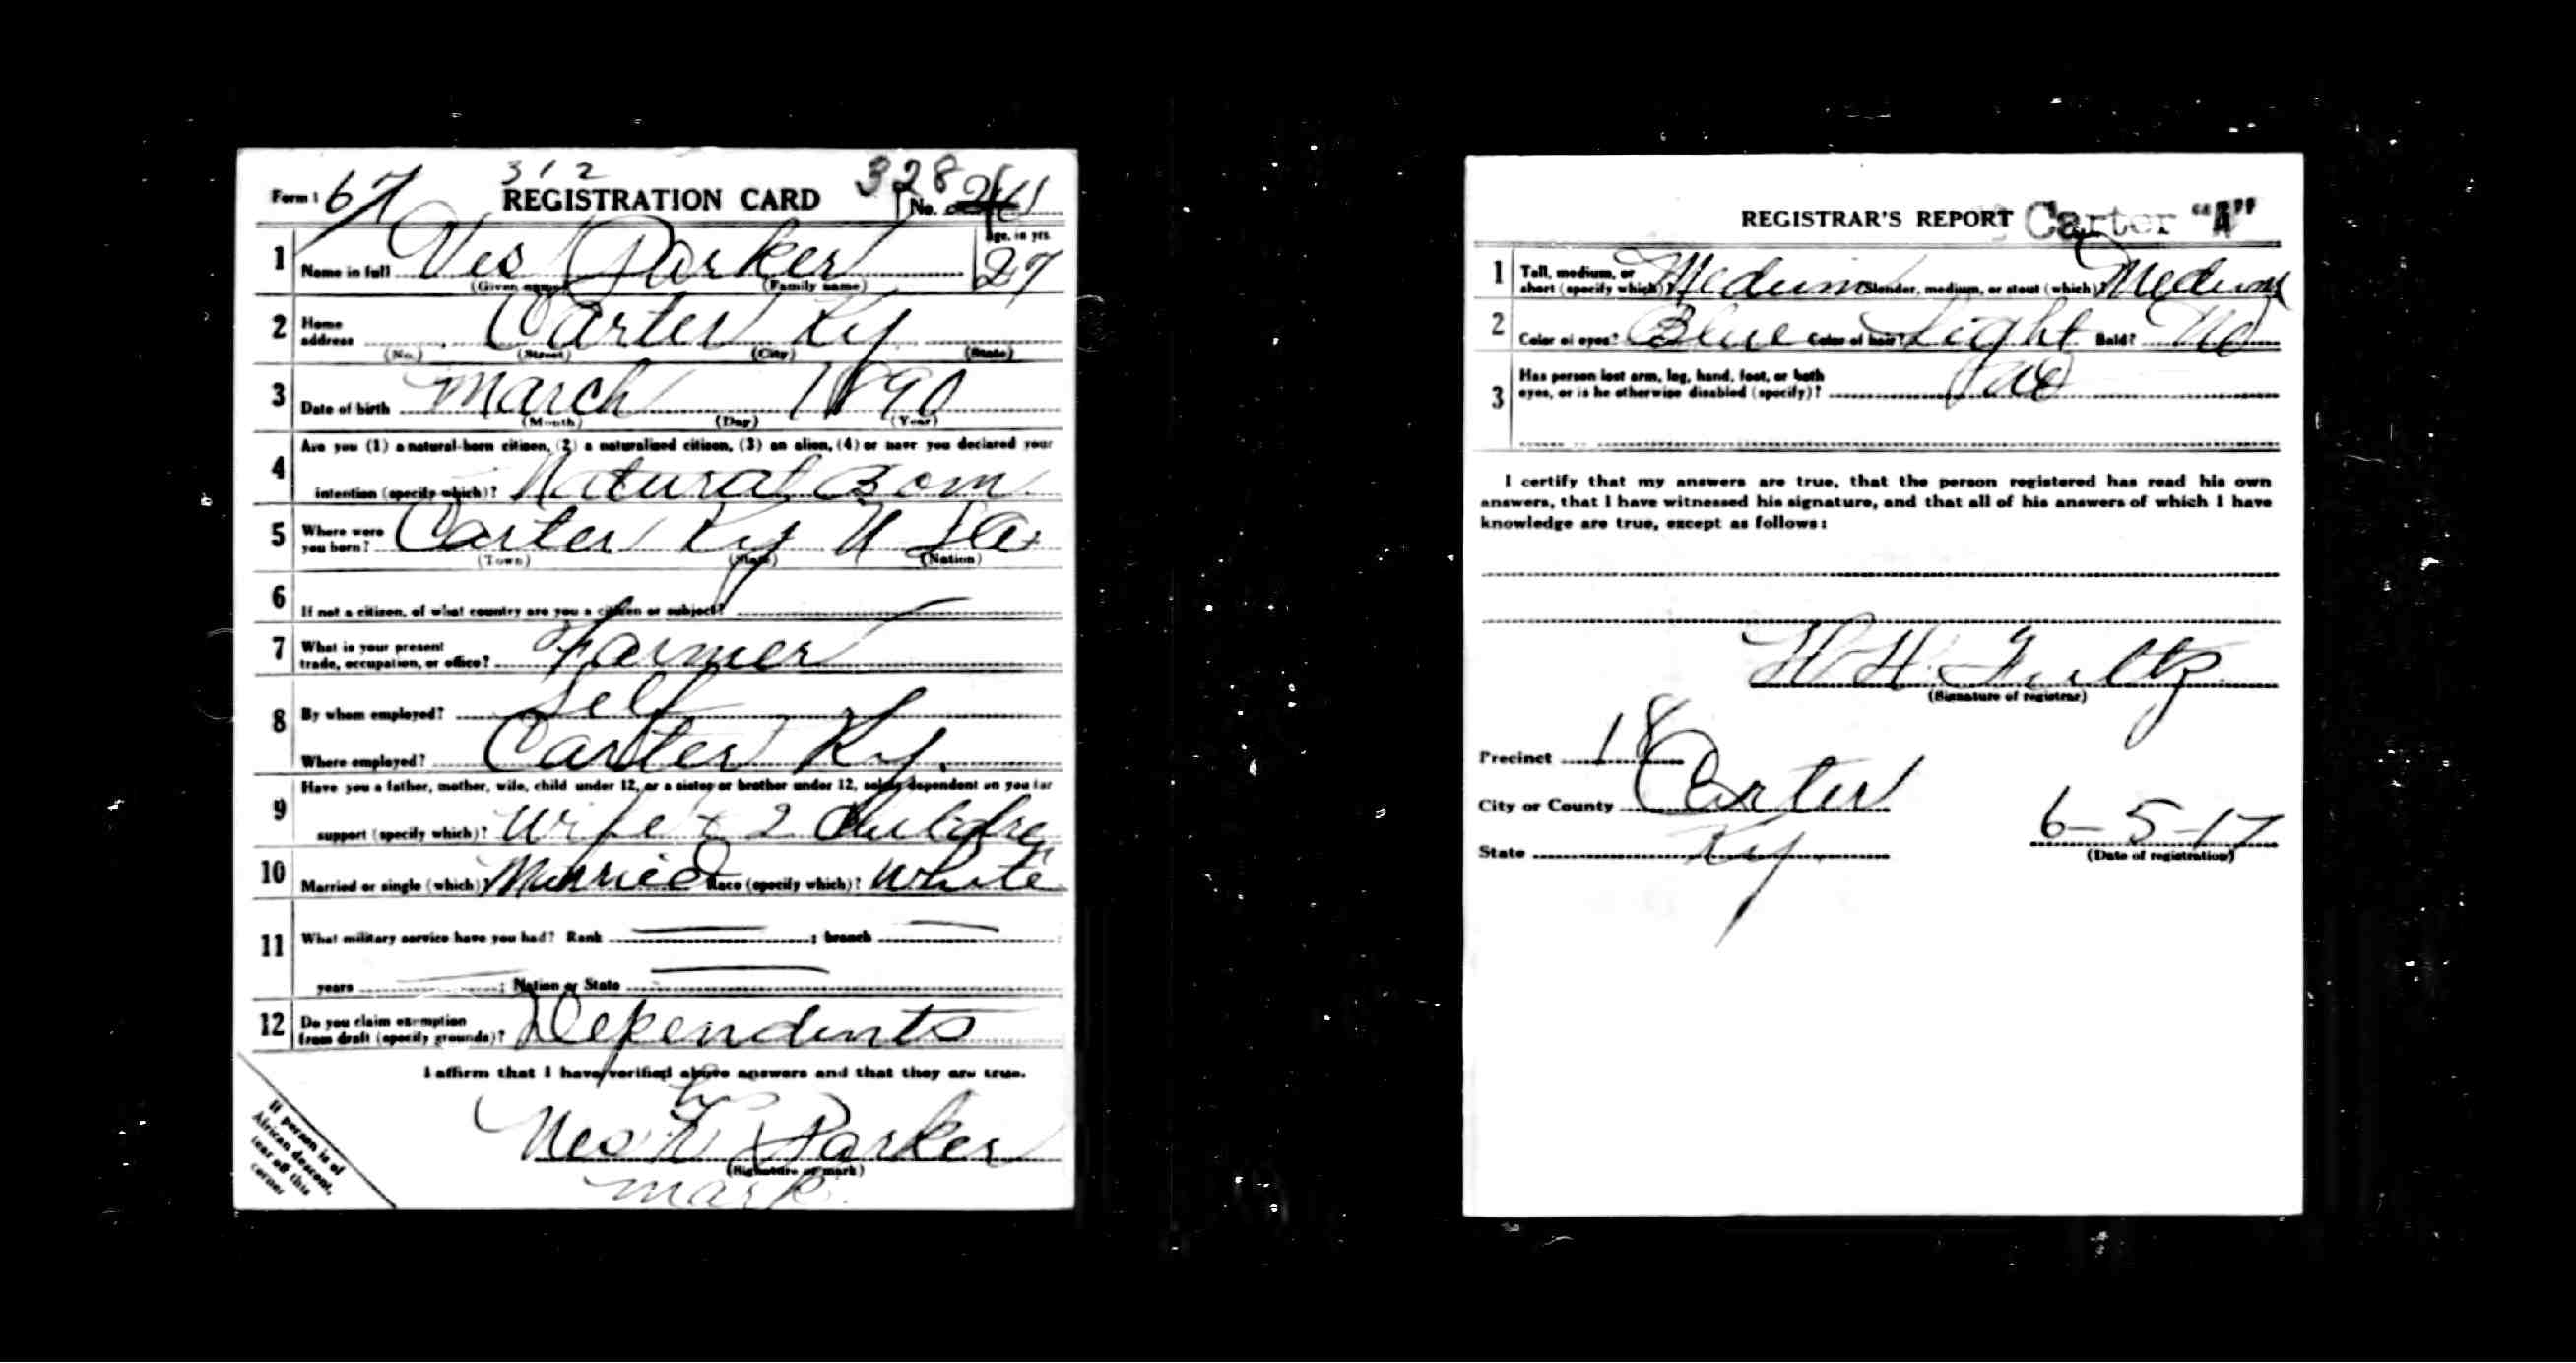 312
Form 1 67 REGISTRATION CARD 328 No.
1 Name in full Ves Parker Age, in yrs. 27
(Given name) (Family name)
2 Home address Carter Ky
(No.) (Street) (City) (State)
3 Date of birth March 1890
(Month) (Day) (Year)
4 Are you (1) a natural-born citizen, (2) a naturalized citizen, (3) an alien, (4) or have you declared your
intention (specify which)? Natural Born
5 Where were you born? Carter Ky U S a
(Town) (State) (Nation)
6 If not a citizen, of what country are you a citizen or subject?
7 What is your present trade, occupation, or office? Farmer
8 By whom employed? Self
Where employed? Carter Ky.
9 Have you a father, mother, wife, child under 12, or a sister or brother under 12, solely dependent on you for
support (specify which)? Wife & 2 Childre
10 Married or single (which)? Married Race (specify which)? White
11 What military service have you had? Rank ; branch
years ; Nation or State
12 Do you claim exemption from draft (specify grounds)? Dependents
I affirm that I have verified above answers and that they are true.
his
Ves X Parker
(Signature or mark)
mark
If person is of
African descent,
tear off this
corner
REGISTRAR'S REPORT Carter "A"
1 Tall, medium, or short (specify which)? Medium Slender, medium, or stout (which)? Medium
2 Color of eyes? Blue Color of hair? Light Bald? No
3 Has person lost arm, leg, hand, foot, or both
eyes, or is he otherwise disabled (specify)? no
I certify that my answers are true, that the person registered has read his own
answers, that I have witnessed his signature, and that all of his answers of which I have
knowledge are true, except as follows:
W H Fultz
(Signature of registrar)
Precinct 18
City or County Carter
State Ky.
6-5-17
(Date of registration)